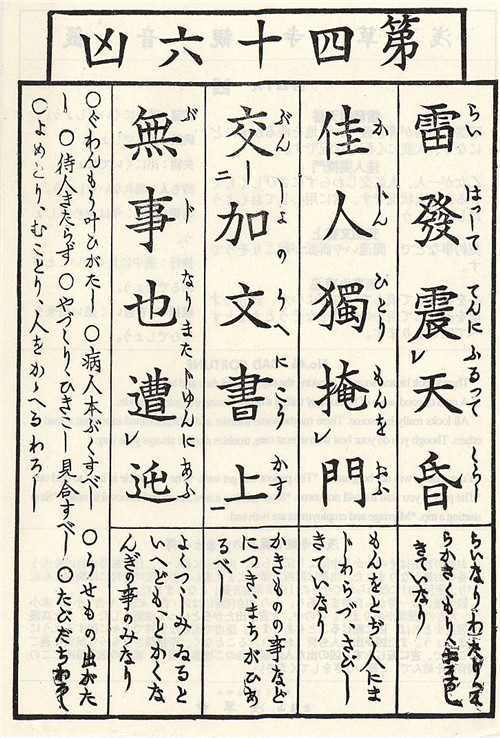 第四十六凶
らい はつして てんに ふるつて くらし
雷發震レ天昏
らいなりわたりてんも
くらかきくもり
きていなり
か じん ひとり もんを お
佳人獨掩レ門
もんをとぢて人にま
じわらづさびし
きていなり
ぶん しよ の うへ に
交二加文書上一
かきものの事など
につきまちがひあ
るべし
ぶ じ なりまたじゆんにあふ
無事也遭レ迍
よつつしみゐると
いへどもとかくな
んぎの事のみなり
○ぐわんもう叶ひがたし ○病人本ぶくすべし ○うせもの出がた
し ○待人きたらず ○やづくり、ひきこし見合すべし ○たびだちわるし
○よめとり、むことり、人をかゝへるわろし